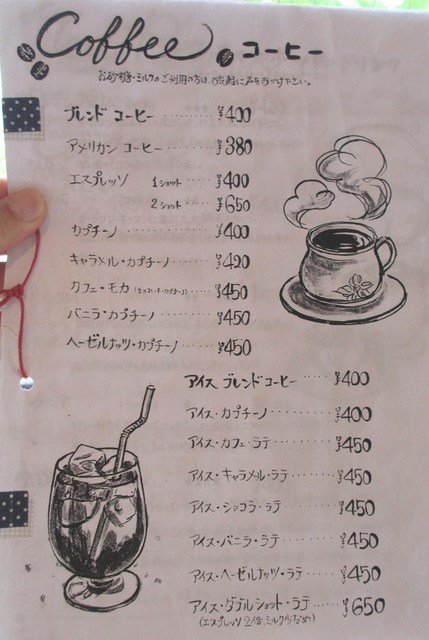 Coffee コーヒー
お砂糖・ミルクのご利用の方は、お気軽に声をおかけ下さい。
ブレンド コーヒー ¥400
アメリカン コーヒー ¥380
エスプレッソ 1ショット ¥400
2ショット ¥650
カプチーノ ¥400
キャラメル・カプチーノ ¥420
カフェ・モカ (チョコレート・カプチーノ) ¥450
バニラ・カプチーノ ¥450
ヘーゼルナッツ・カプチーノ ¥450
アイス ブレンドコーヒー ¥400
アイス・カプチーノ ¥400
アイス・カフェ・ラテ ¥450
アイス・キャラメル・ラテ ¥450
アイス・ショコラ・ラテ ¥450
アイス・バニラ・ラテ ¥450
アイス・ヘーゼルナッツ・ラテ ¥450
アイス・ダブルショット・ラテ ¥650
(エスプレッソ2倍 ミルク少なめ)